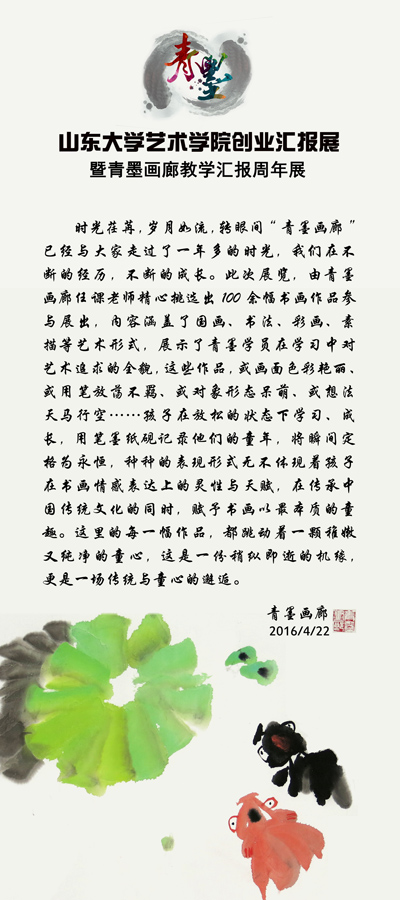 青墨
山东大学艺术学院创业汇报展
暨青墨画廊教学汇报周年展
时光荏苒,岁月如流,转眼间“青墨画廊”
已经与大家走过了一年多的时光,我们在不
断的经历,不断的成长。此次展览,由青墨
画廊任课老师精心挑选出100余幅书画作品参
与展出,内容涵盖了国画、书法、彩画、素
描等艺术形式,展示了青墨学员在学习中对
艺术追求的全貌,这些作品,或画面色彩艳丽、
或用笔放荡不羁、或对象形态呆萌、或想法
天马行空……孩子在放松的状态下学习、成
长,用笔墨纸砚记录他们的童年,将瞬间定
格为永恒,种种的表现形式无不体现着孩子
在书画情感表达上的灵性与天赋,在传承中
国传统文化的同时,赋予书画以最本质的童
趣。这里的每一幅作品,都跳动着一颗稚嫩
又纯净的童心,这是一份稍纵即逝的机缘,
更是一场传统与童心的邂逅。
青墨画廊
2016/4/22